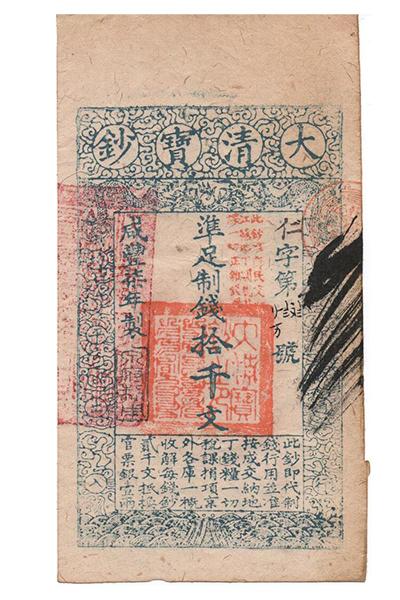 大清寶鈔
仁字第號
準足制錢拾千文
咸豐柒年製
此鈔即代制
錢行用並准
按成交納地
丁錢糧一切
稅課捐項京
外各庫一概
收解每錢鈔
貳千文抵換
官票銀壹兩